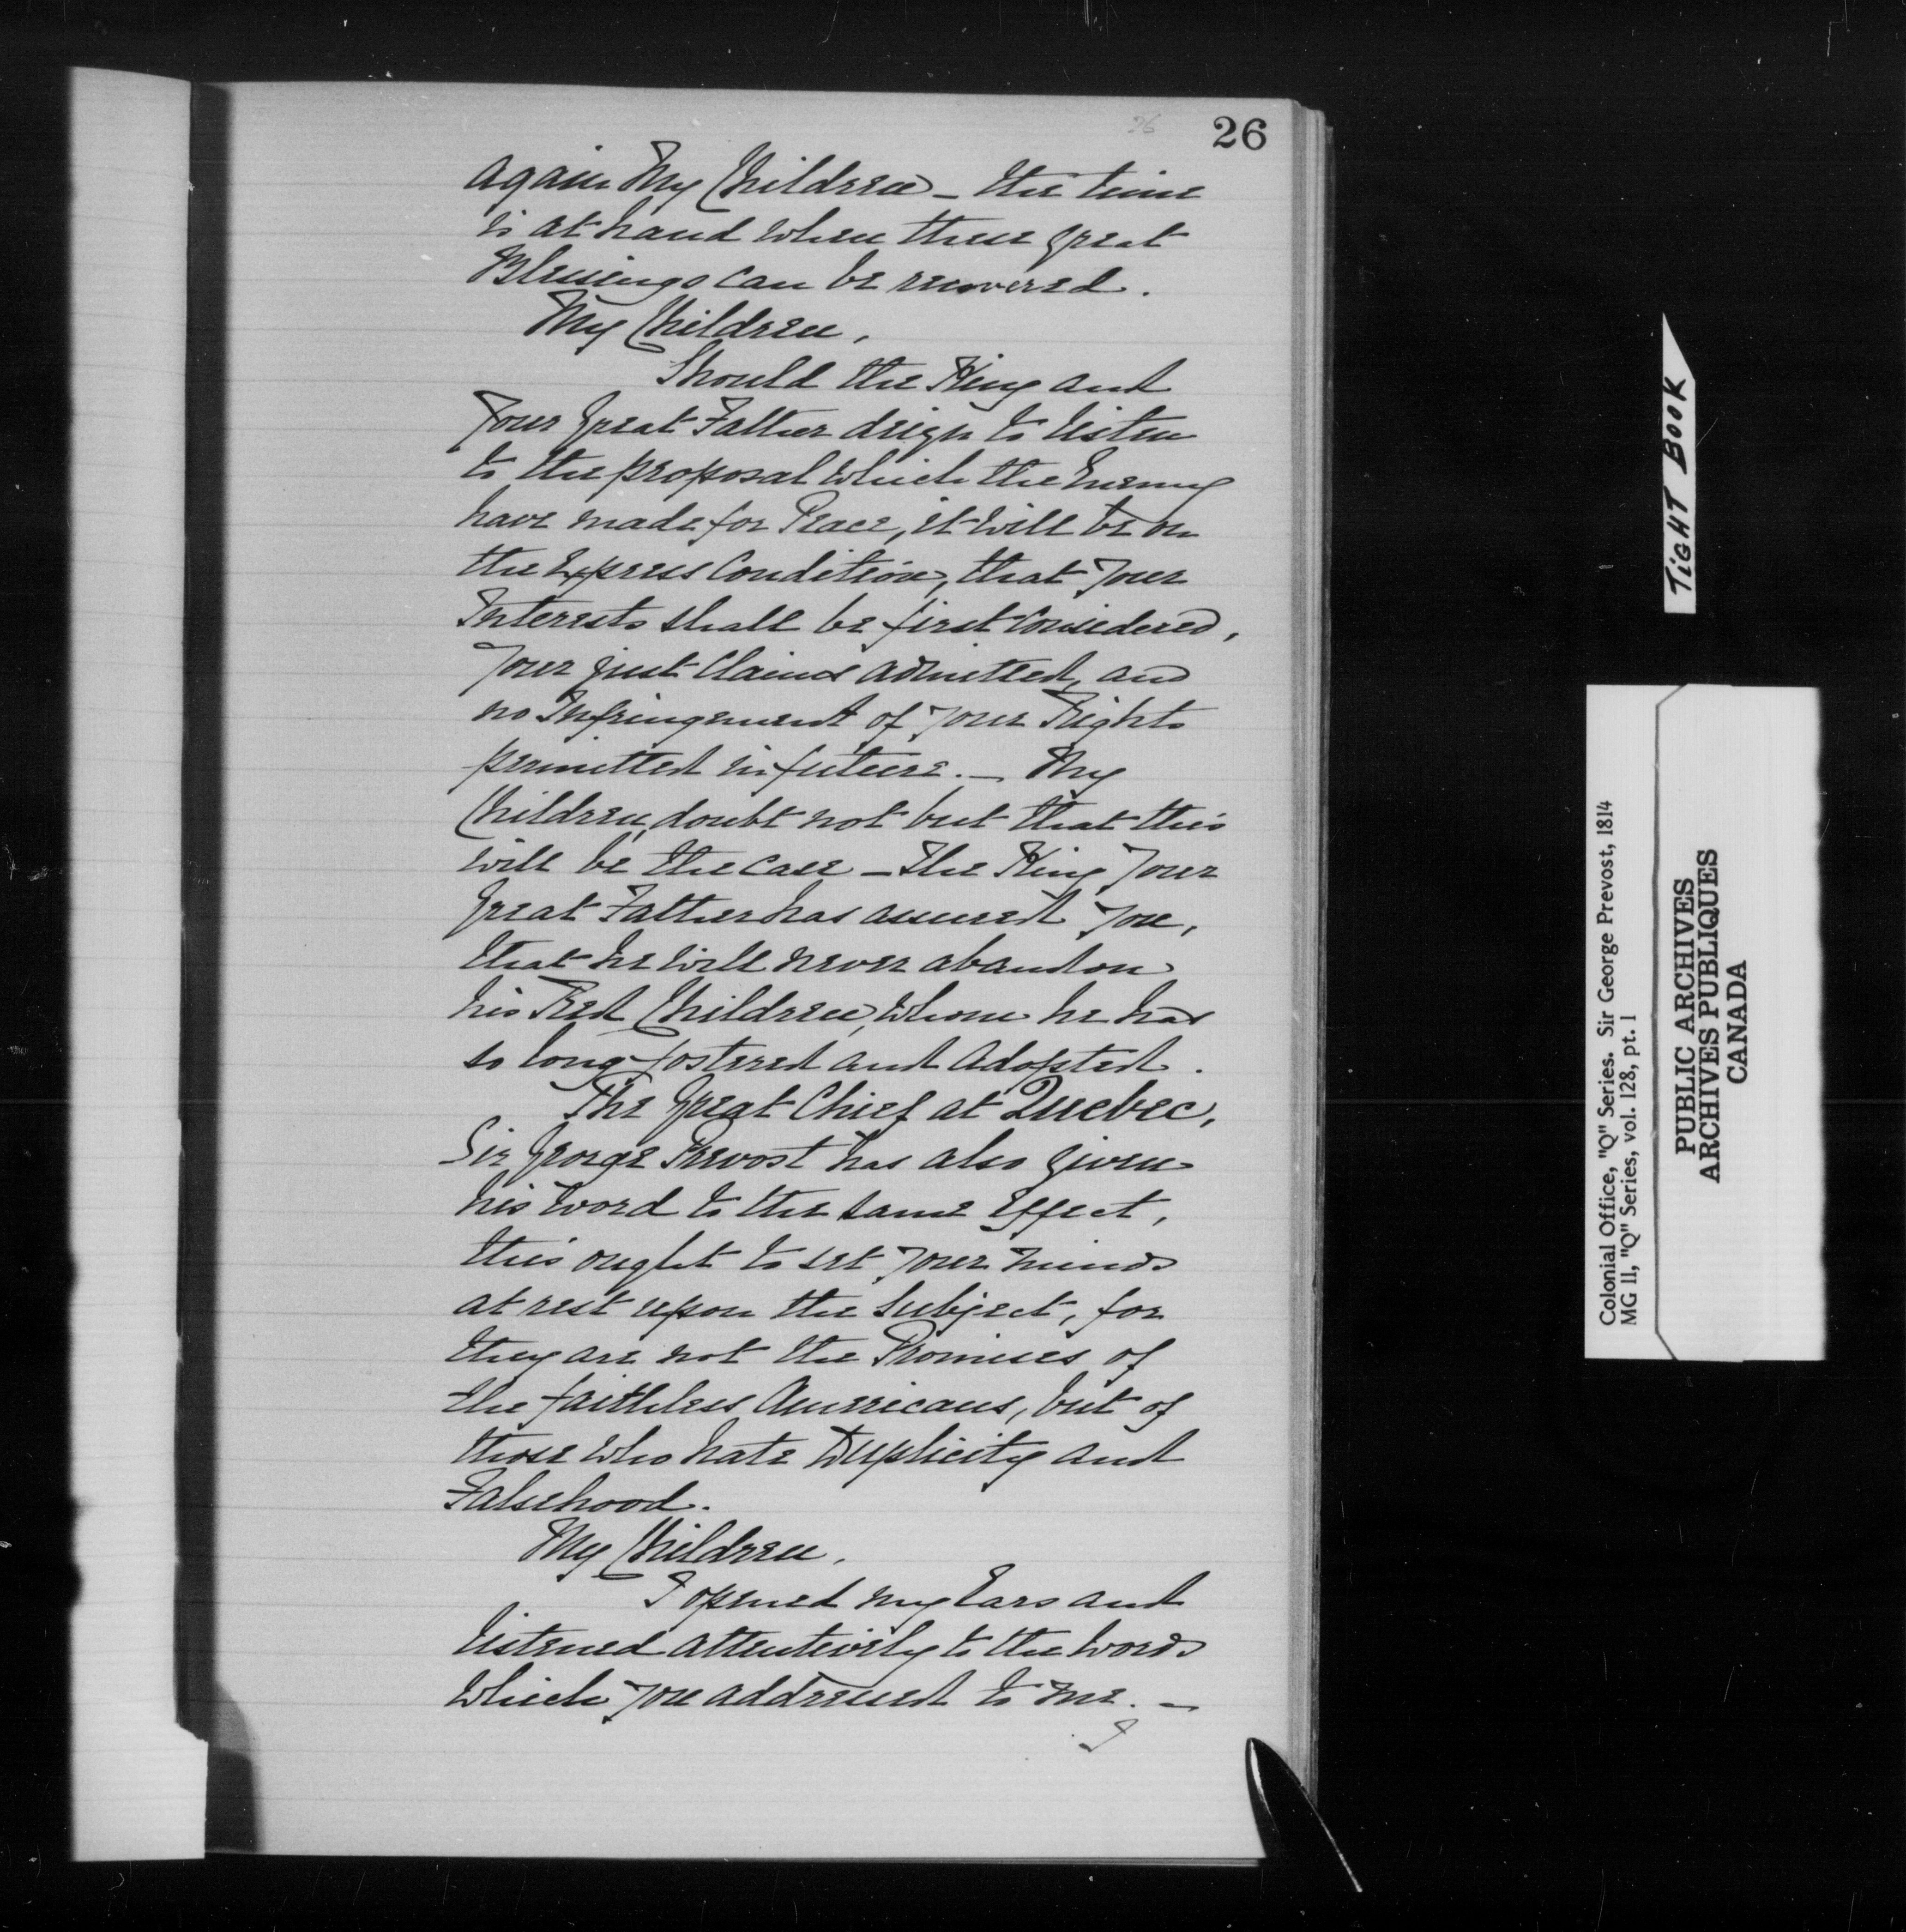 26
26
again My Children – the time
is at hand when these great
Blessings can be recovered.
My Children,
Should the King and
Your Great Father deign to listen
to the proposal which the Enemy
have made for Peace, it will be on
the Express Condition, that Your
Interests shall be first Considered,
Your just Claims admitted, and
no Infringement of your Rights
permitted in future. – My
Children, doubt not but that this
will be the case – the King Your
Great Father has assured you,
that he will never abandon
his Red Children, whom he has
so long fostered and adopted.
The Great Chief at Quebec,
Sir George Prevost has also given
his word to the same Effect,
this ought to set your minds
at rest upon the Subject, for
they are not the Promises of
the faithless Americans, but of
those who hate Duplicity and
Falsehood.
My Children,
I opened my Ears and
listened attentively to the words
which you addressed to me. –
I
TIGHT BOOK
Colonial Office, "Q" Series. Sir George Prevost, 1814
MG 11, "Q" Series, vol. 128, pt. 1
PUBLIC ARCHIVES
ARCHIVES PUBLIQUES
CANADA